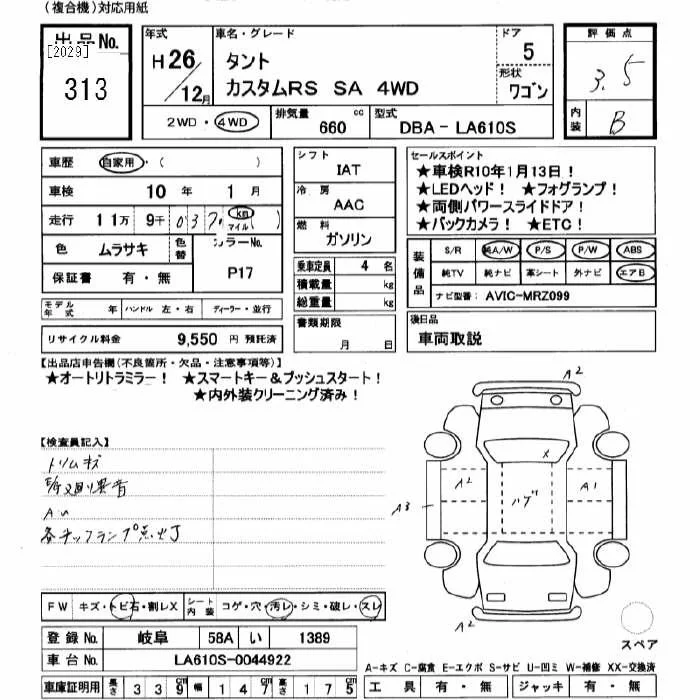 (複合機)対応用紙
出品No.
[2029]
313
年式
H26/12月
車名・グレード
タント
カスタムRS SA 4WD
ドア
5
形状
ワゴン
評価点
3.5
内装
B
2WD・4WD
排気量
660 cc
型式
DBA-LA610S
車歴 自家用・( )
車検 10年 1月
走行 11万9千037 km マイル( )
色 ムラサキ 色替 カラーNo. P17
保証書 有・無
シフト
IAT
冷房
AAC
燃料
ガソリン
乗車定員 4 名
積載量 kg
総重量 kg
セールスポイント
★車検R10年1月13日!
★LEDヘッド! ★フォグランプ!
★両側パワースライドドア!
★バックカメラ! ★ETC!
装備品
S/R 純A/W P/S P/W ABS
純TV 純ナビ 革シート 外ナビ エアB
ナビ型番: AVIC-MRZ099
モデル年式 年 ハンドル 左・右 ディーラー・並行
リサイクル料金 9,550 円 預託済
書類期限
月 日
後日品
車両取説
【出品店申告欄(不良箇所・欠品・注意事項等)】
★オートリトラミラー! ★スマートキー&プッシュスタート!
★内外装クリーニング済み!
【検査員記入】
トリムキズ
廻り異音
AU
各チックランプ点灯
A2
A2
ハゲ
A1
A3
X
A2
スペア
FW キズ・トビ石・割レX シート内装 コゲ・穴・汚レ・シミ・破レ・スレ
登録No. 岐阜 58A い 1389
車台No. LA610S-0044922
A-キズ C-腐食 E-エクボ S-サビ U-凹ミ W-補修 XX-交換済
車庫証明用 長さ 339cm 幅 147cm 高さ 175cm
工具 有・無 ジャッキ 有・無